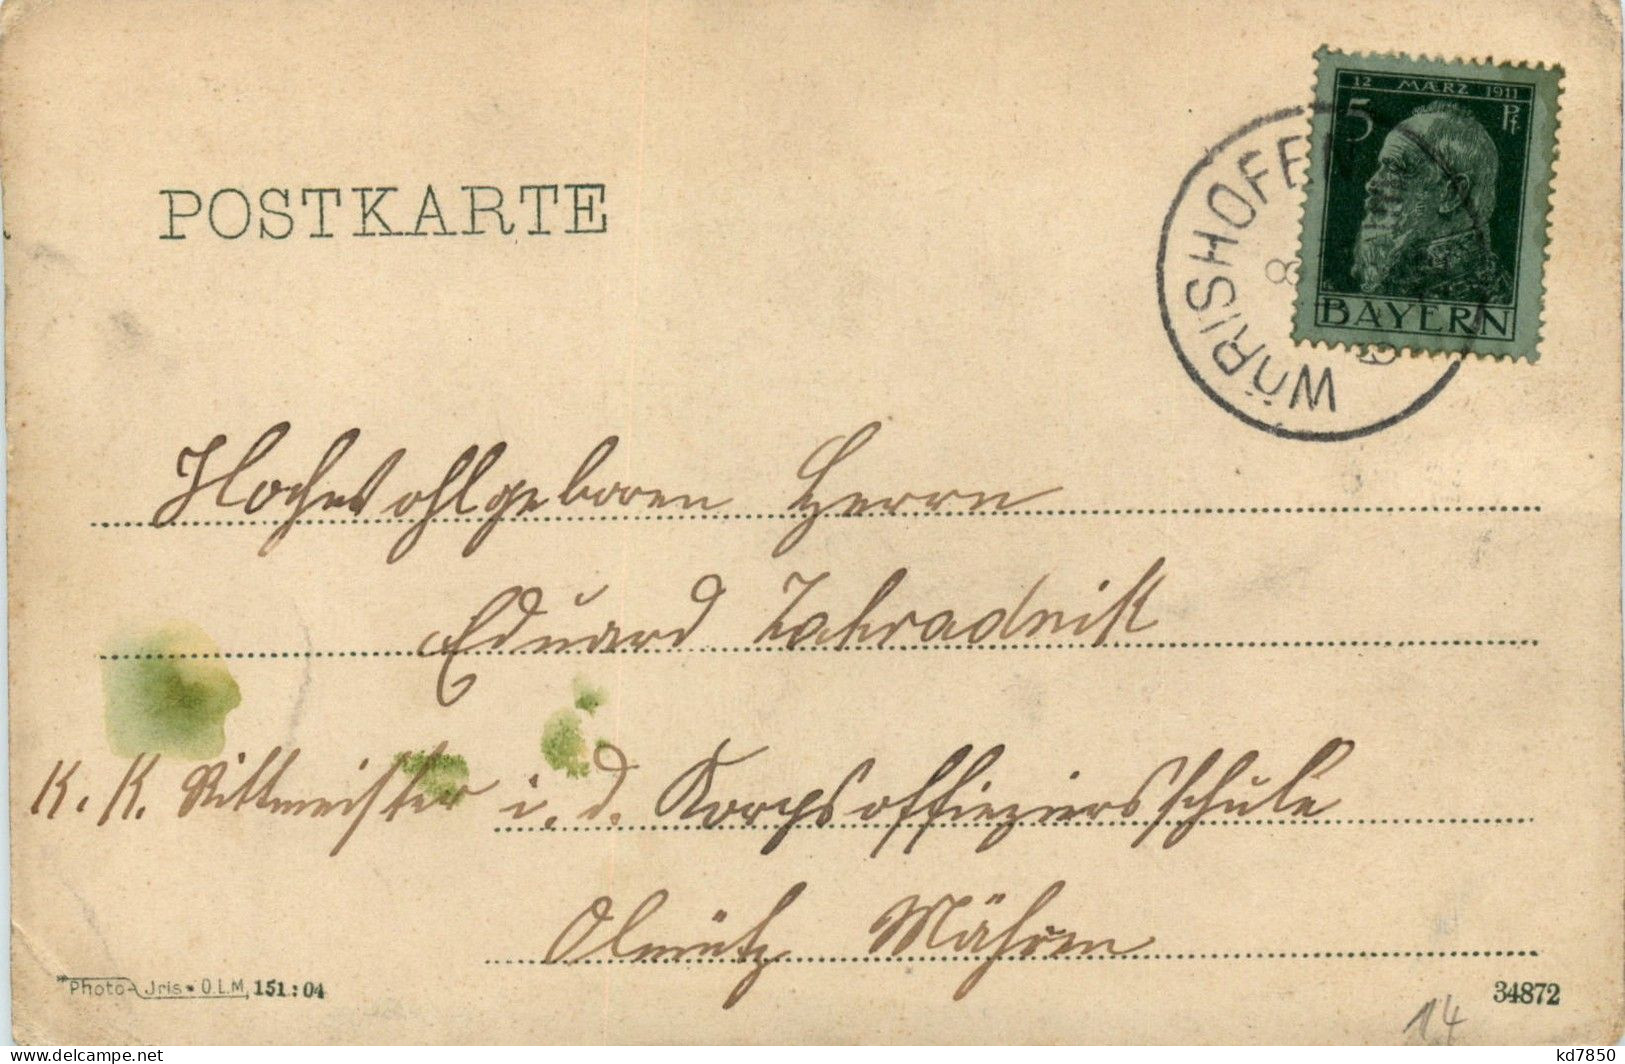 12 MÄRZ 1911
5 Pf
BAYERN
WÖRISHOFEN
8
POSTKARTE
Hochwohlgeboren Herrn
Eduard Zahradnik
K. K. Rittmeister i. d. Korpsoffiziersschule
Olmütz Mähren
Photo-Jris-O.L.M, 151:04
34872
14
kd7850